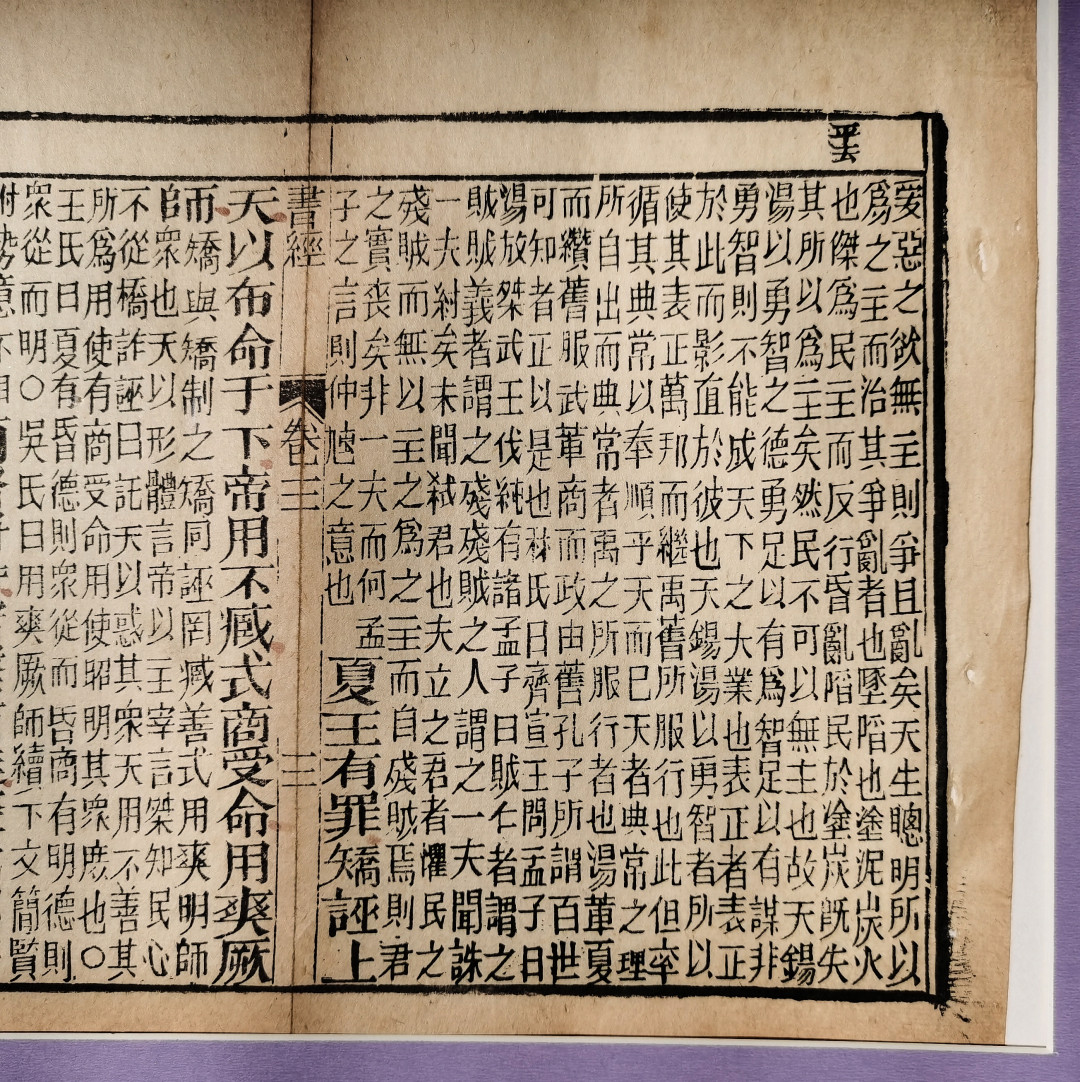 平去
爰惡之欲無主則爭且亂矣天生聰明所以
爲之主而治其爭亂者也墜陷也塗泥炭火
也桀爲民主而反行昏亂陷民於塗炭旣失
其所以爲主矣然民不可以無主也故天錫
湯以勇智之德勇足以有爲智足以有謀非
勇智則不能成天下之大業也表正者表正
於此而影直於彼也天錫湯以勇智者所以
使其表正萬邦而繼禹舊所服行也此但率
循其典常以奉順乎天而已天者典常之理
所自出而典常者禹之所服行者也湯革夏
而纘舊服武革商而政由舊孔子所謂百世
可知者正以是也林氏曰齊宣王問孟子曰
湯放桀武王伐紂有諸孟子曰賊仁者謂之
賊賊義者謂之殘殘賊之人謂之一夫聞誅
一夫紂矣未聞弑君也夫立之君者懼民之
殘賊而無以主之爲之主而自殘賊焉則君
之實喪矣非一夫而何孟
子之言則仲虺之意也
夏王有罪矯誣上
書經 卷三 三
天以布命于下帝用不臧式商受命用爽厥
師矯與矯制之矯同誣罔臧善式用爽明師
師衆也天以形體言帝以主宰言桀知民心
不從矯詐誣曰託天以惑其衆天用不善其
所爲用使有商受命用使昭明其衆庶也○
王氏曰夏有昏德則衆從而昏商有明德則
衆從而明○吳氏曰用爽厥師續下文簡賢
附勢意不相